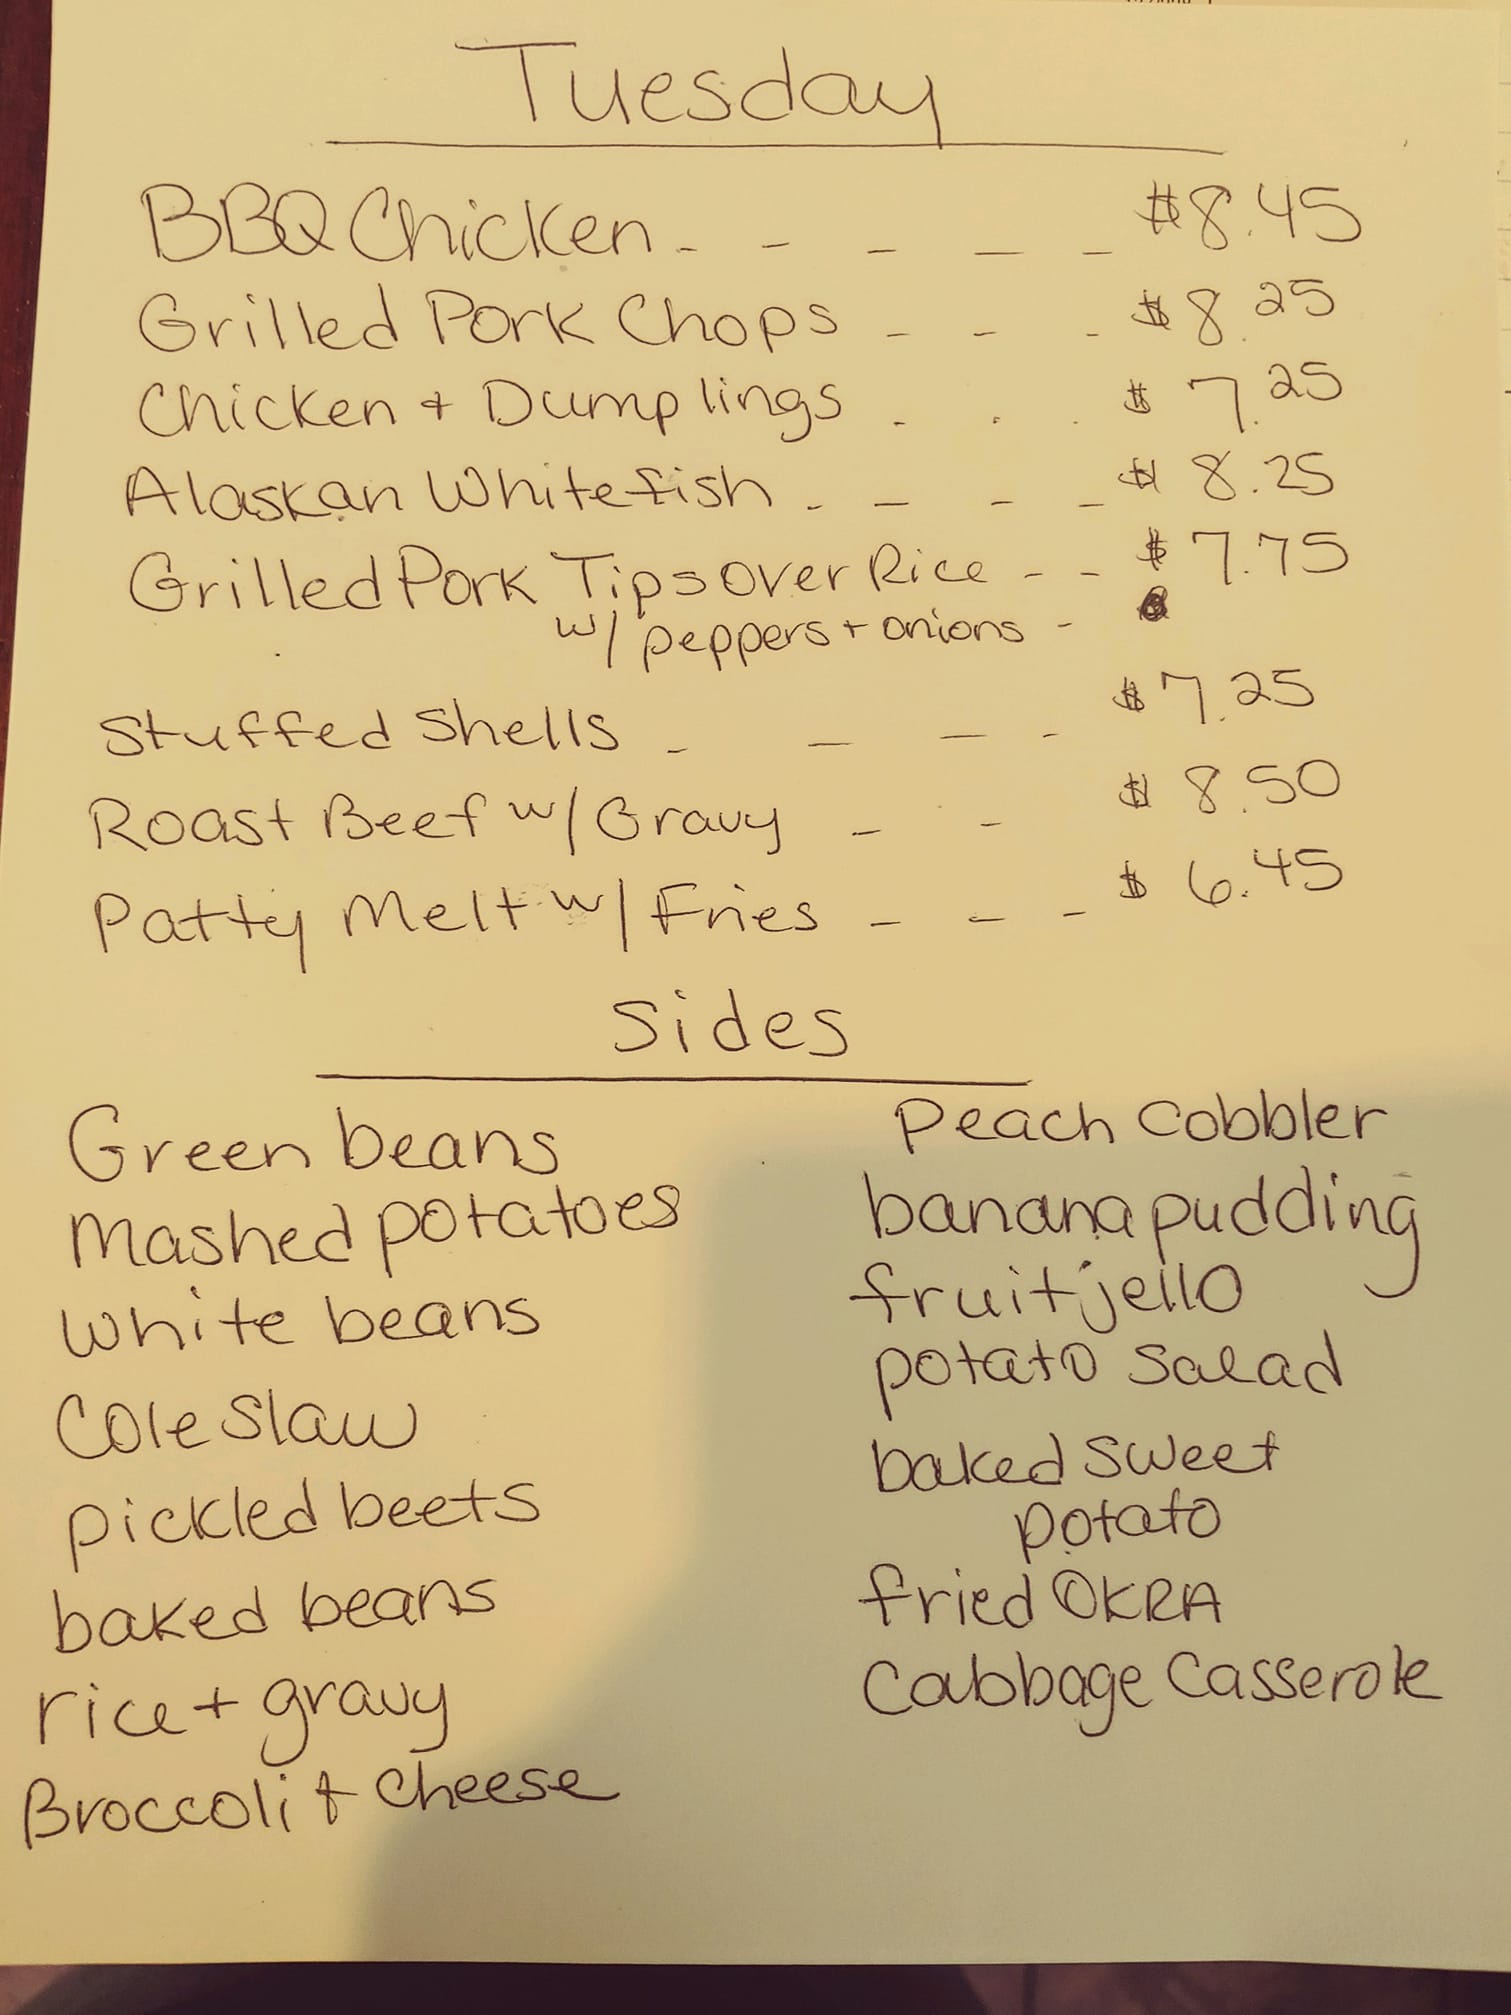 Tuesday
BBQ Chicken - - - - - $8.45
Grilled Pork Chops - - - $8.25
Chicken + Dumplings - - - $7.25
Alaskan Whitefish - - - - $8.25
Grilled Pork Tips Over Rice - - $7.75
w/ peppers + onions -
Stuffed Shells - - - - $7.25
Roast Beef w/ Gravy - - $8.50
Patty Melt w/ Fries - - - $6.45
Sides
Green beans
Mashed potatoes
white beans
Cole Slaw
pickled beets
baked beans
rice + gravy
Broccoli + Cheese
Peach Cobbler
banana pudding
fruit jello
potato Salad
baked Sweet
potato
fried OKRA
Cabbage Casserole